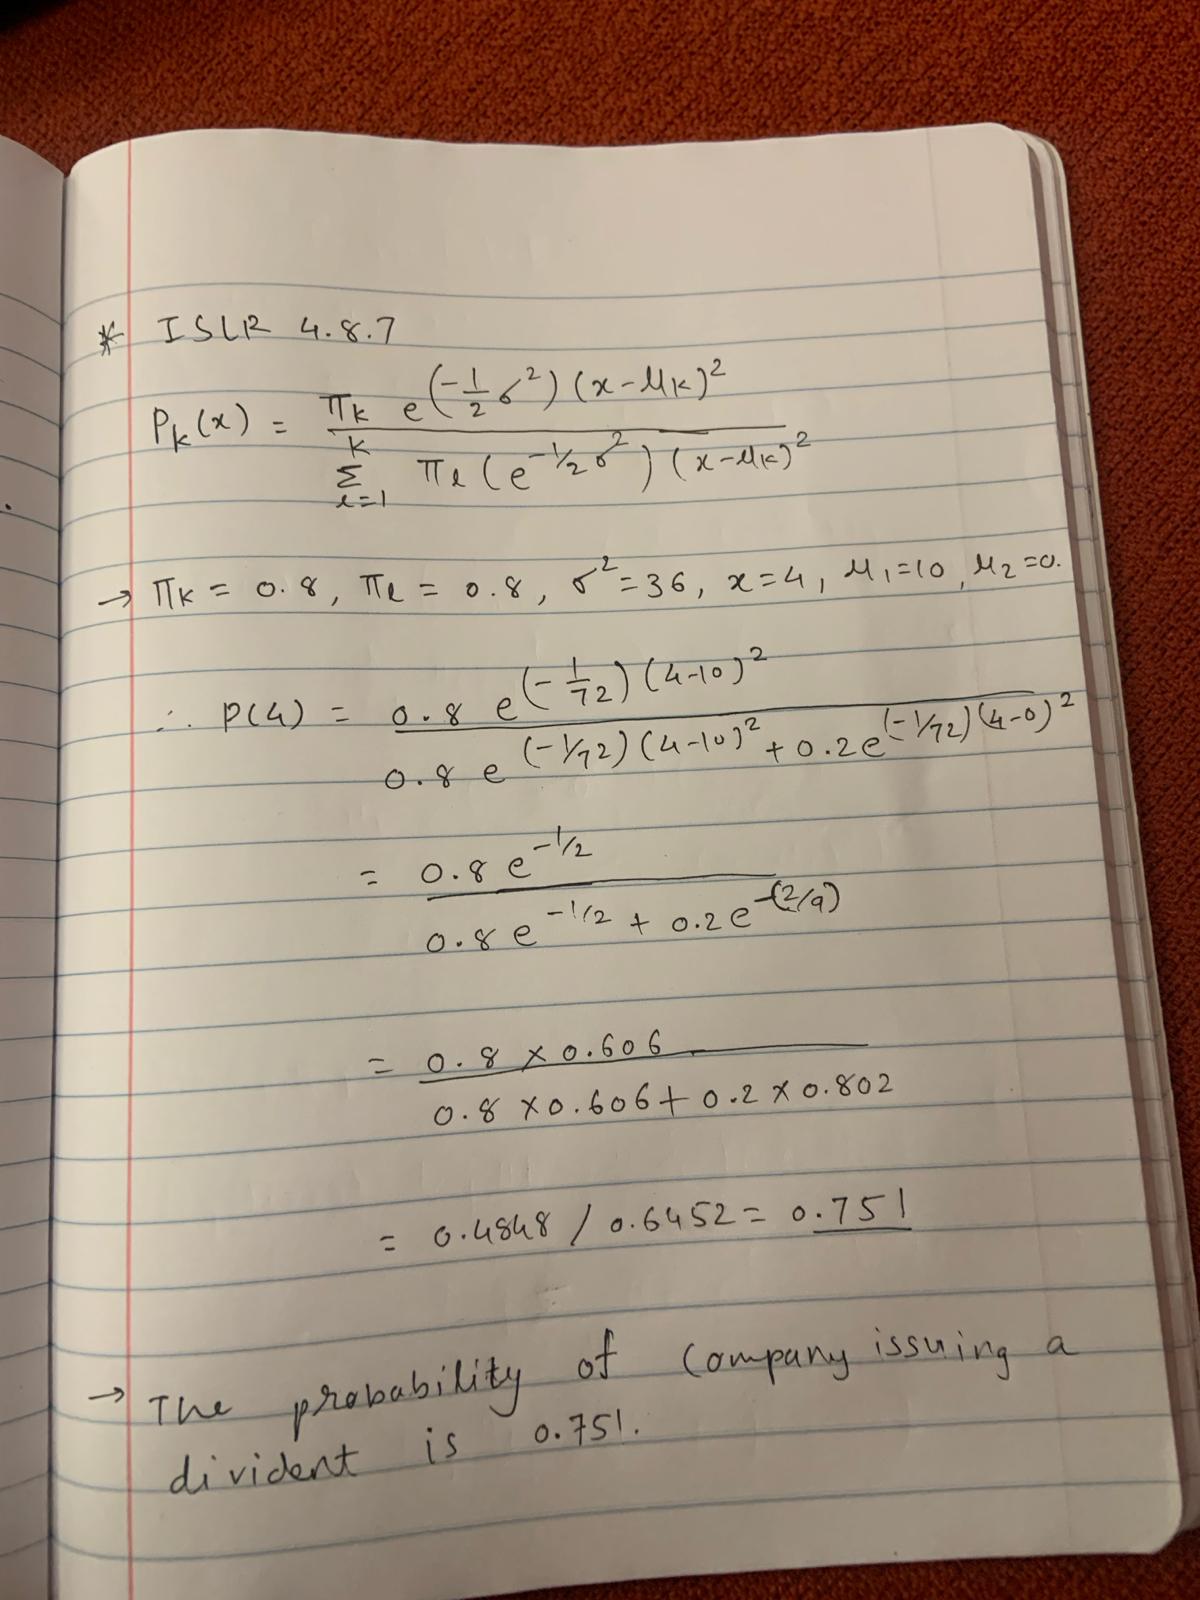 * ISLR 4.8.7
P_k(x) = π_k e^(-1/2 σ²)(x-μ_k)² / Σ_{l=1}^{k} π_l (e^{-1/2 σ²})(x-μ_k)²
→ π_k = 0.8, π_l = 0.8, σ²=36, x=4, μ₁=10, μ₂=0.
∴ P(4) = 0.8 e^(-1/72)(4-10)² / 0.8 e^(-1/72)(4-10)² + 0.2e^(-1/72)(4-0)²
= 0.8 e^{-1/2} / 0.8 e^{-1/2} + 0.2 e^{-(2/9)}
= 0.8 x 0.606 / 0.8 x 0.606 + 0.2 x 0.802
= 0.4848 / 0.6452 = 0.751
→ The probability of Company issuing a
divident is 0.751.